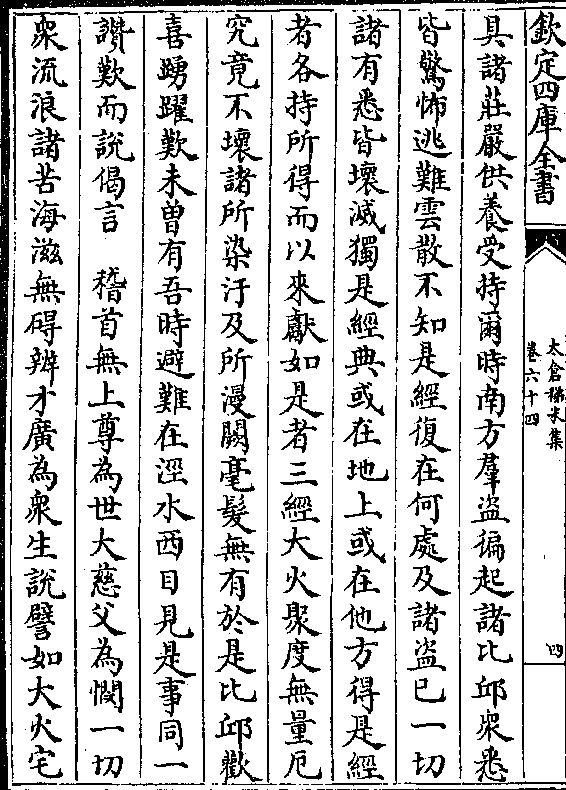 欽定四庫全書
太倉稊米集
卷六十四
四
具諸莊嚴供養受持爾時南方羣盜徧起諸比邱衆悉
皆驚怖逃難雲散不知是經復在何處及諸盜已一切
諸有悉皆壞滅獨是經典或在地上或在他方得是經
者各持所得而以來獻如是者三經大火聚度無量厄
究竟不壞諸所染汙及所漫闕毫髮無有於是比邱歡
喜踴躍歎未曾有吾時避難在涇水西目見是事同一
讚歎而說偈言　稽首無上尊為世大慈父為憫一切
衆流浪諸苦海滋無碍辨才廣為衆生說譬如大火宅